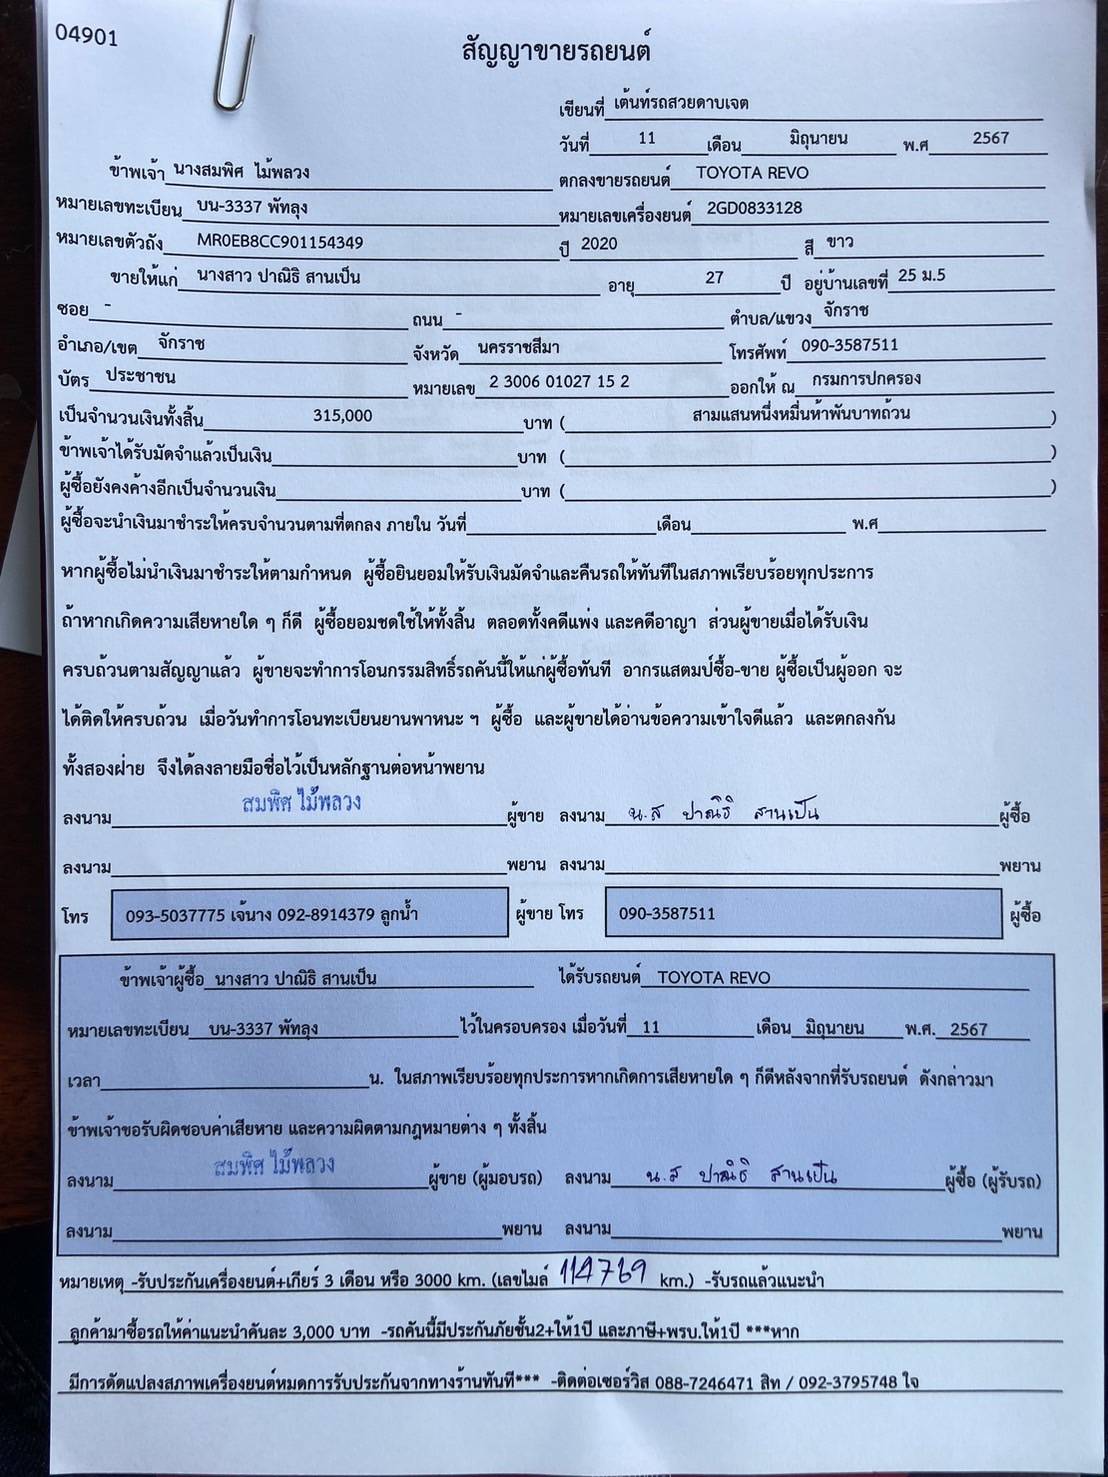 04901
สัญญาขายรถยนต์
เขียนที่ เต้นท์รถสวยดาบเจต
วันที่ 11 เดือน มิถุนายน พ.ศ 2567
ข้าพเจ้า นางสมพิศ ไม้พลวง ตกลงขายรถยนต์ TOYOTA REVO
หมายเลขทะเบียน บน-3337 พัทลุง หมายเลขเครื่องยนต์ 2GD0833128
หมายเลขตัวถัง MR0EB8CC901154349 ปี 2020 สี ขาว
ขายให้แก่ นางสาว ปาณิธิ สานเป็น อายุ 27 ปี อยู่บ้านเลขที่ 25 ม.5
ซอย - ถนน - ตำบล/แขวง จักราช
อำเภอ/เขต จักราช จังหวัด นครราชสีมา โทรศัพท์ 090-3587511
บัตร ประชาชน หมายเลข 2 3006 01027 15 2 ออกให้ ณ กรมการปกครอง
เป็นจำนวนเงินทั้งสิ้น 315,000 บาท ( สามแสนหนึ่งหมื่นห้าพันบาทถ้วน )
ข้าพเจ้าได้รับมัดจำแล้วเป็นเงิน บาท ( )
ผู้ซื้อยังคงค้างอีกเป็นจำนวนเงิน บาท ( )
ผู้ซื้อจะนำเงินมาชำระให้ครบจำนวนตามที่ตกลง ภายใน วันที่ เดือน พ.ศ
หากผู้ซื้อไม่นำเงินมาชำระให้ตามกำหนด ผู้ซื้อยินยอมให้รับเงินมัดจำและคืนรถให้ทันทีในสภาพเรียบร้อยทุกประการ
ถ้าหากเกิดความเสียหายใด ๆ ก็ดี ผู้ซื้อยอมชดใช้ให้ทั้งสิ้น ตลอดทั้งคดีแพ่ง และคดีอาญา ส่วนผู้ขายเมื่อได้รับเงิน
ครบถ้วนตามสัญญาแล้ว ผู้ขายจะทำการโอนกรรมสิทธิ์รถคันนี้ให้แก่ผู้ซื้อทันที อากรแสตมป์ซื้อ-ขาย ผู้ซื้อเป็นผู้ออก จะ
ได้ติดให้ครบถ้วน เมื่อวันทำการโอนทะเบียนยานพาหนะ ฯ ผู้ซื้อ และผู้ขายได้อ่านข้อความเข้าใจดีแล้ว และตกลงกัน
ทั้งสองฝ่าย จึงได้ลงลายมือชื่อไว้เป็นหลักฐานต่อหน้าพยาน
ลงนาม สมพิศ ไม้พลวง ผู้ขาย ลงนาม น.ส ปาณิธิ สานเป็น ผู้ซื้อ
ลงนาม พยาน ลงนาม พยาน
โทร 093-5037775 เจ้นาง 092-8914379 ลูกน้ำ ผู้ขาย โทร 090-3587511 ผู้ซื้อ
ข้าพเจ้าผู้ซื้อ นางสาว ปาณิธิ สานเป็น ได้รับรถยนต์ TOYOTA REVO
หมายเลขทะเบียน บน-3337 พัทลุง ไว้ในครอบครอง เมื่อวันที่ 11 เดือน มิถุนายน พ.ศ. 2567
เวลา น. ในสภาพเรียบร้อยทุกประการหากเกิดการเสียหายใด ๆ ก็ดีหลังจากที่รับรถยนต์ ดังกล่าวมา
ข้าพเจ้าขอรับผิดชอบค่าเสียหาย และความผิดตามกฎหมายต่าง ๆ ทั้งสิ้น
ลงนาม สมพิศ ไม้พลวง ผู้ขาย (ผู้มอบรถ) ลงนาม น.ส ปาณิธิ สานเป็น ผู้ซื้อ (ผู้รับรถ)
ลงนาม พยาน ลงนาม พยาน
หมายเหตุ -รับประกันเครื่องยนต์+เกียร์ 3 เดือน หรือ 3000 km. (เลขไมล์ 114769 km.) -รับรถแล้วแนะนำ
ลูกค้ามาซื้อรถให้ค่าแนะนำคันละ 3,000 บาท -รถคันนี้มีประกันภัยชั้น2+ให้1ปี และภาษี+พรบ.ให้1ปี ***หาก
มีการดัดแปลงสภาพเครื่องยนต์หมดการรับประกันจากทางร้านทันที*** -ติดต่อเซอร์วิส 088-7246471 สิท / 092-3795748 ใจ